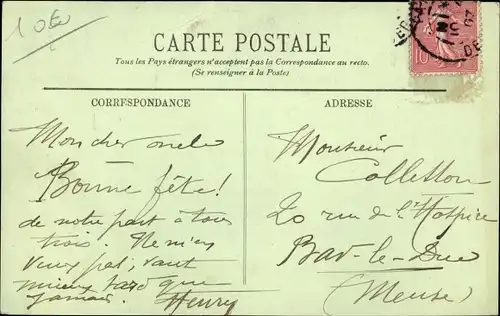 10€
CARTE POSTALE
Tous les Pays étrangers n'acceptent pas la Correspondance au recto.
(Se renseigner à la Poste)
CORRESPONDANCE
ADRESSE
Mon cher oncle
Bonne fête!
de notre part à tous
trois. Ne m'en
veux pas, vaut
mieux tard que
jamais. Henry
Monsieur
Colletton
20 rue de l'Hospice
Bar-le-Duc
(Meuse)
10